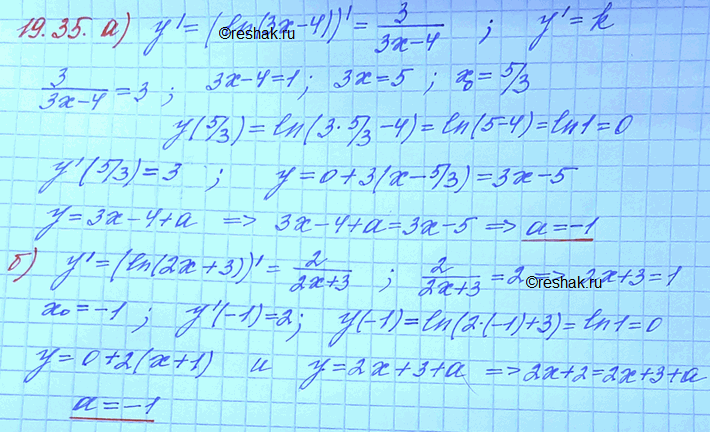 19.35. а) y' = (ln(3x-4))' = 3/(3x-4) ; y' = k
3/(3x-4) = 3 ; 3x-4=1 ; 3x=5 ; x₀ = 5/3
y(5/3) = ln(3·5/3-4) = ln(5-4) = ln1 = 0
y'(5/3) = 3 ; y = 0+3(x-5/3) = 3x-5
y = 3x-4+a => 3x-4+a = 3x-5 => a = -1
б) y' = (ln(2x+3))' = 2/(2x+3) ; 2/(2x+3) = 2 => 2x+3=1
x₀ = -1 ; y'(-1) = 2 ; y(-1) = ln(2·(-1)+3) = ln1 = 0
y = 0+2(x+1) и y = 2x+3+a => 2x+2 = 2x+3+a
a = -1
©reshak.ru
©reshak.ru
©reshak.ru